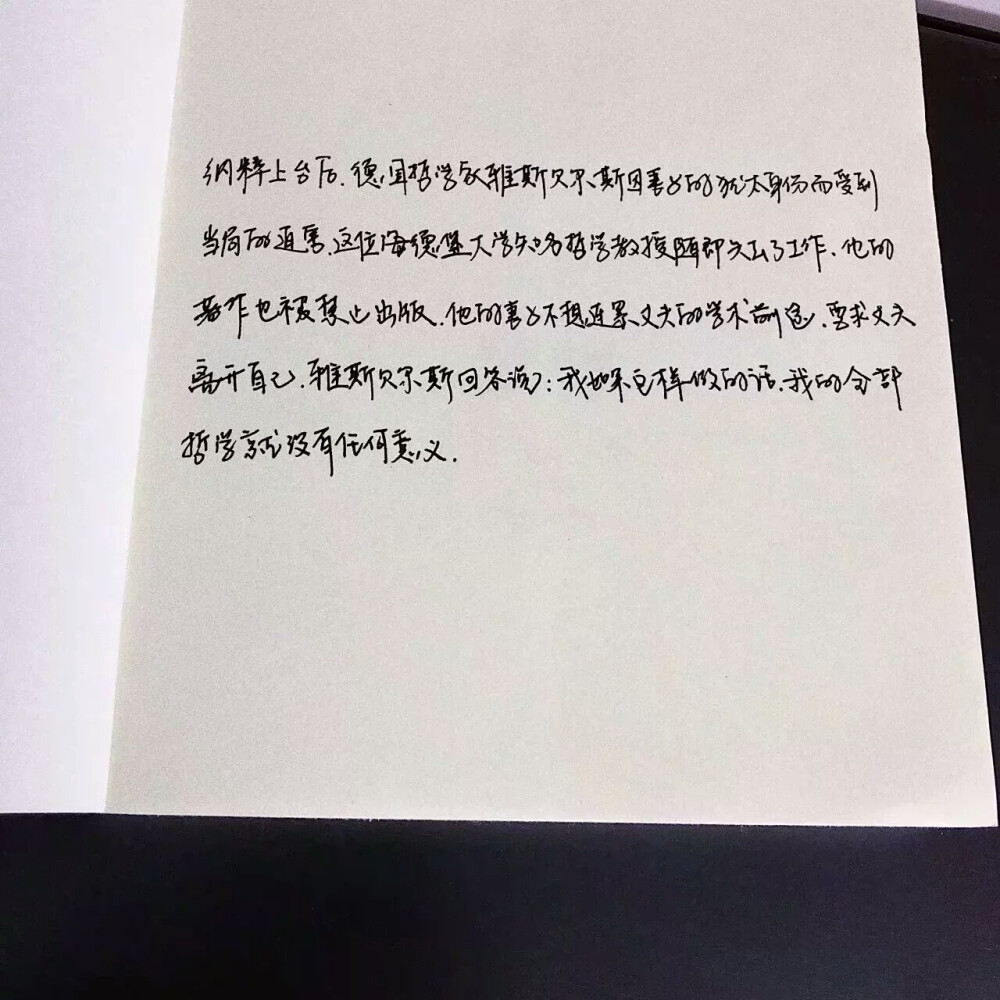 纳粹上台后.德国哲学家雅斯贝尔斯因妻子的犹太身份而受到
当局的迫害.这位海德堡大学知名哲学教授随即失去了工作.他的
著作也被禁止出版.他的妻子不想连累丈夫的学术前途.要求丈夫
离开自己.雅斯贝尔斯回答说:我如果这样做的话.我的全部
哲学就没有任何意义.